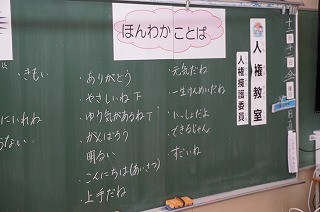 ほんわかことば
・きもい
にいれね
ない
・ありがとう
・やさしいね
・ゆう気があるね
・がんばろう
明るい
・こんにちは(あいさつ)
・上手だね
・元気だね
・一生けんめいだね
・いっしょだよ
・できるじゃん
すごいね
人権教室
人権擁護委員
十二月十一日